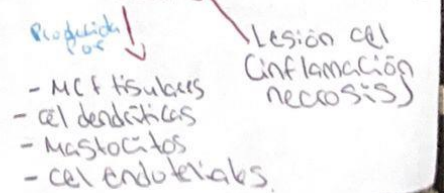 Producida
por
- MCF tisulares
- cél dendríticas
- Mastocitos
- cel endoteriales
Lesión cel
(inflamación
necrosis)